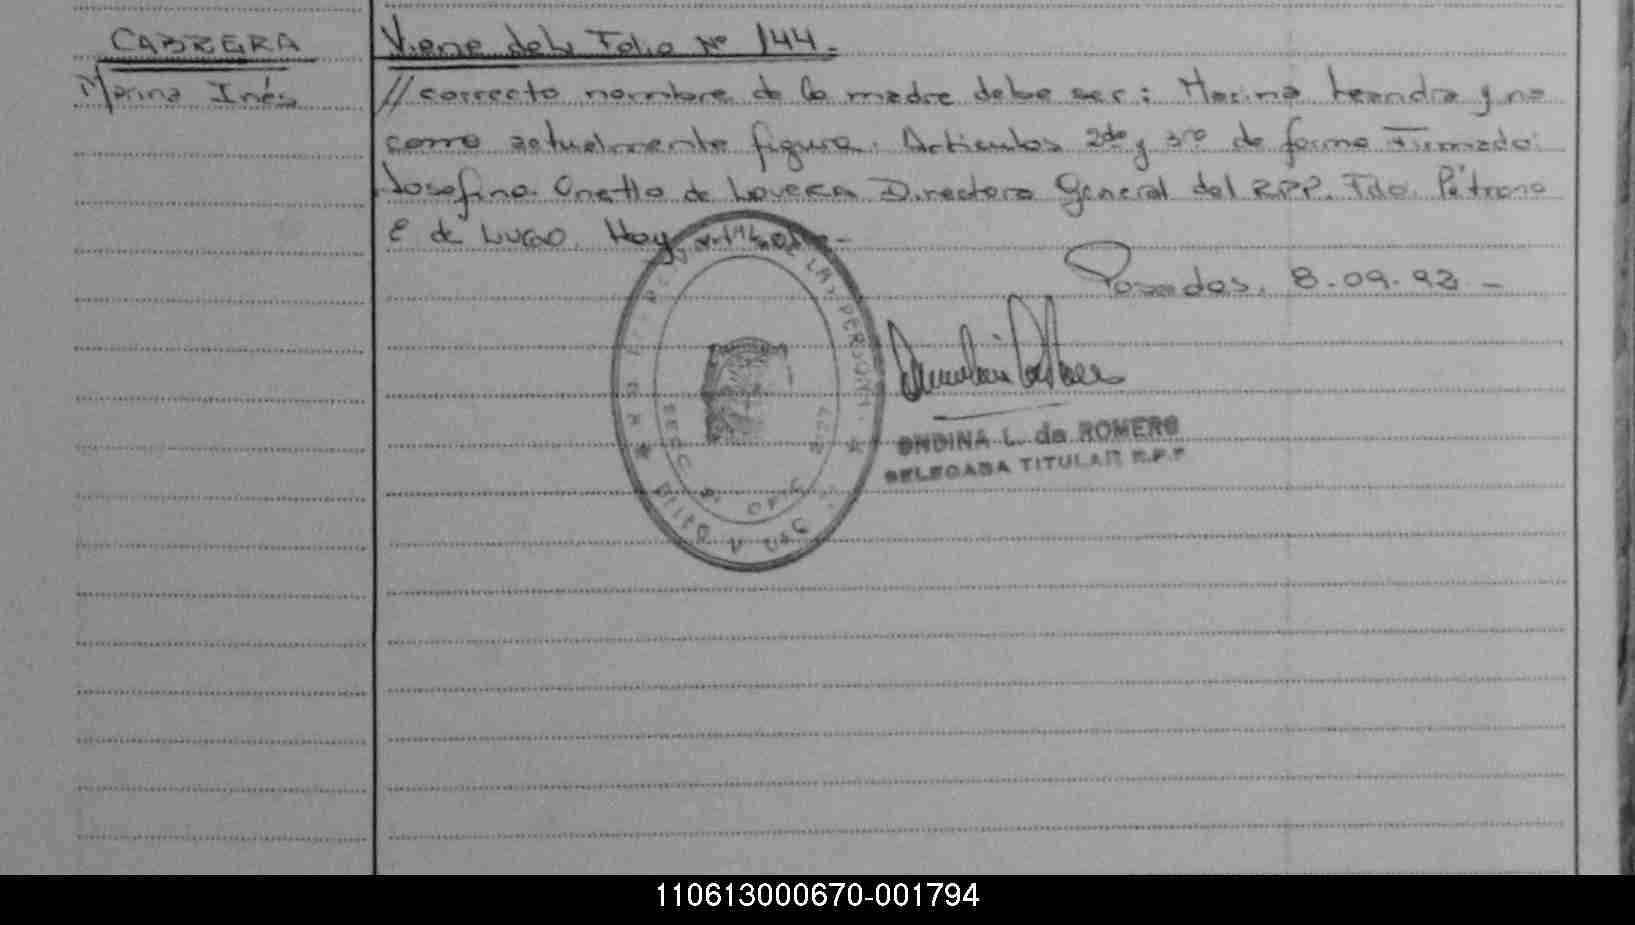 CABRERA
Marina Inés
Viene del Folio Nº 144.
// correcto nombre de la madre debe ser: Marina Leandra y no
como actualmente figura. Articulos 2do y 3ro de forma Firmado:
Josefina Onetto de Lovera Directora General del R.P.P. Fdo. Petrona
E de Lugo. Hoy
Posadas, 8.09.92.-
ONDINA L. de ROMERO
DELEGADA TITULAR R.P.P
DE LAS PERSONAS
110613000670-001794